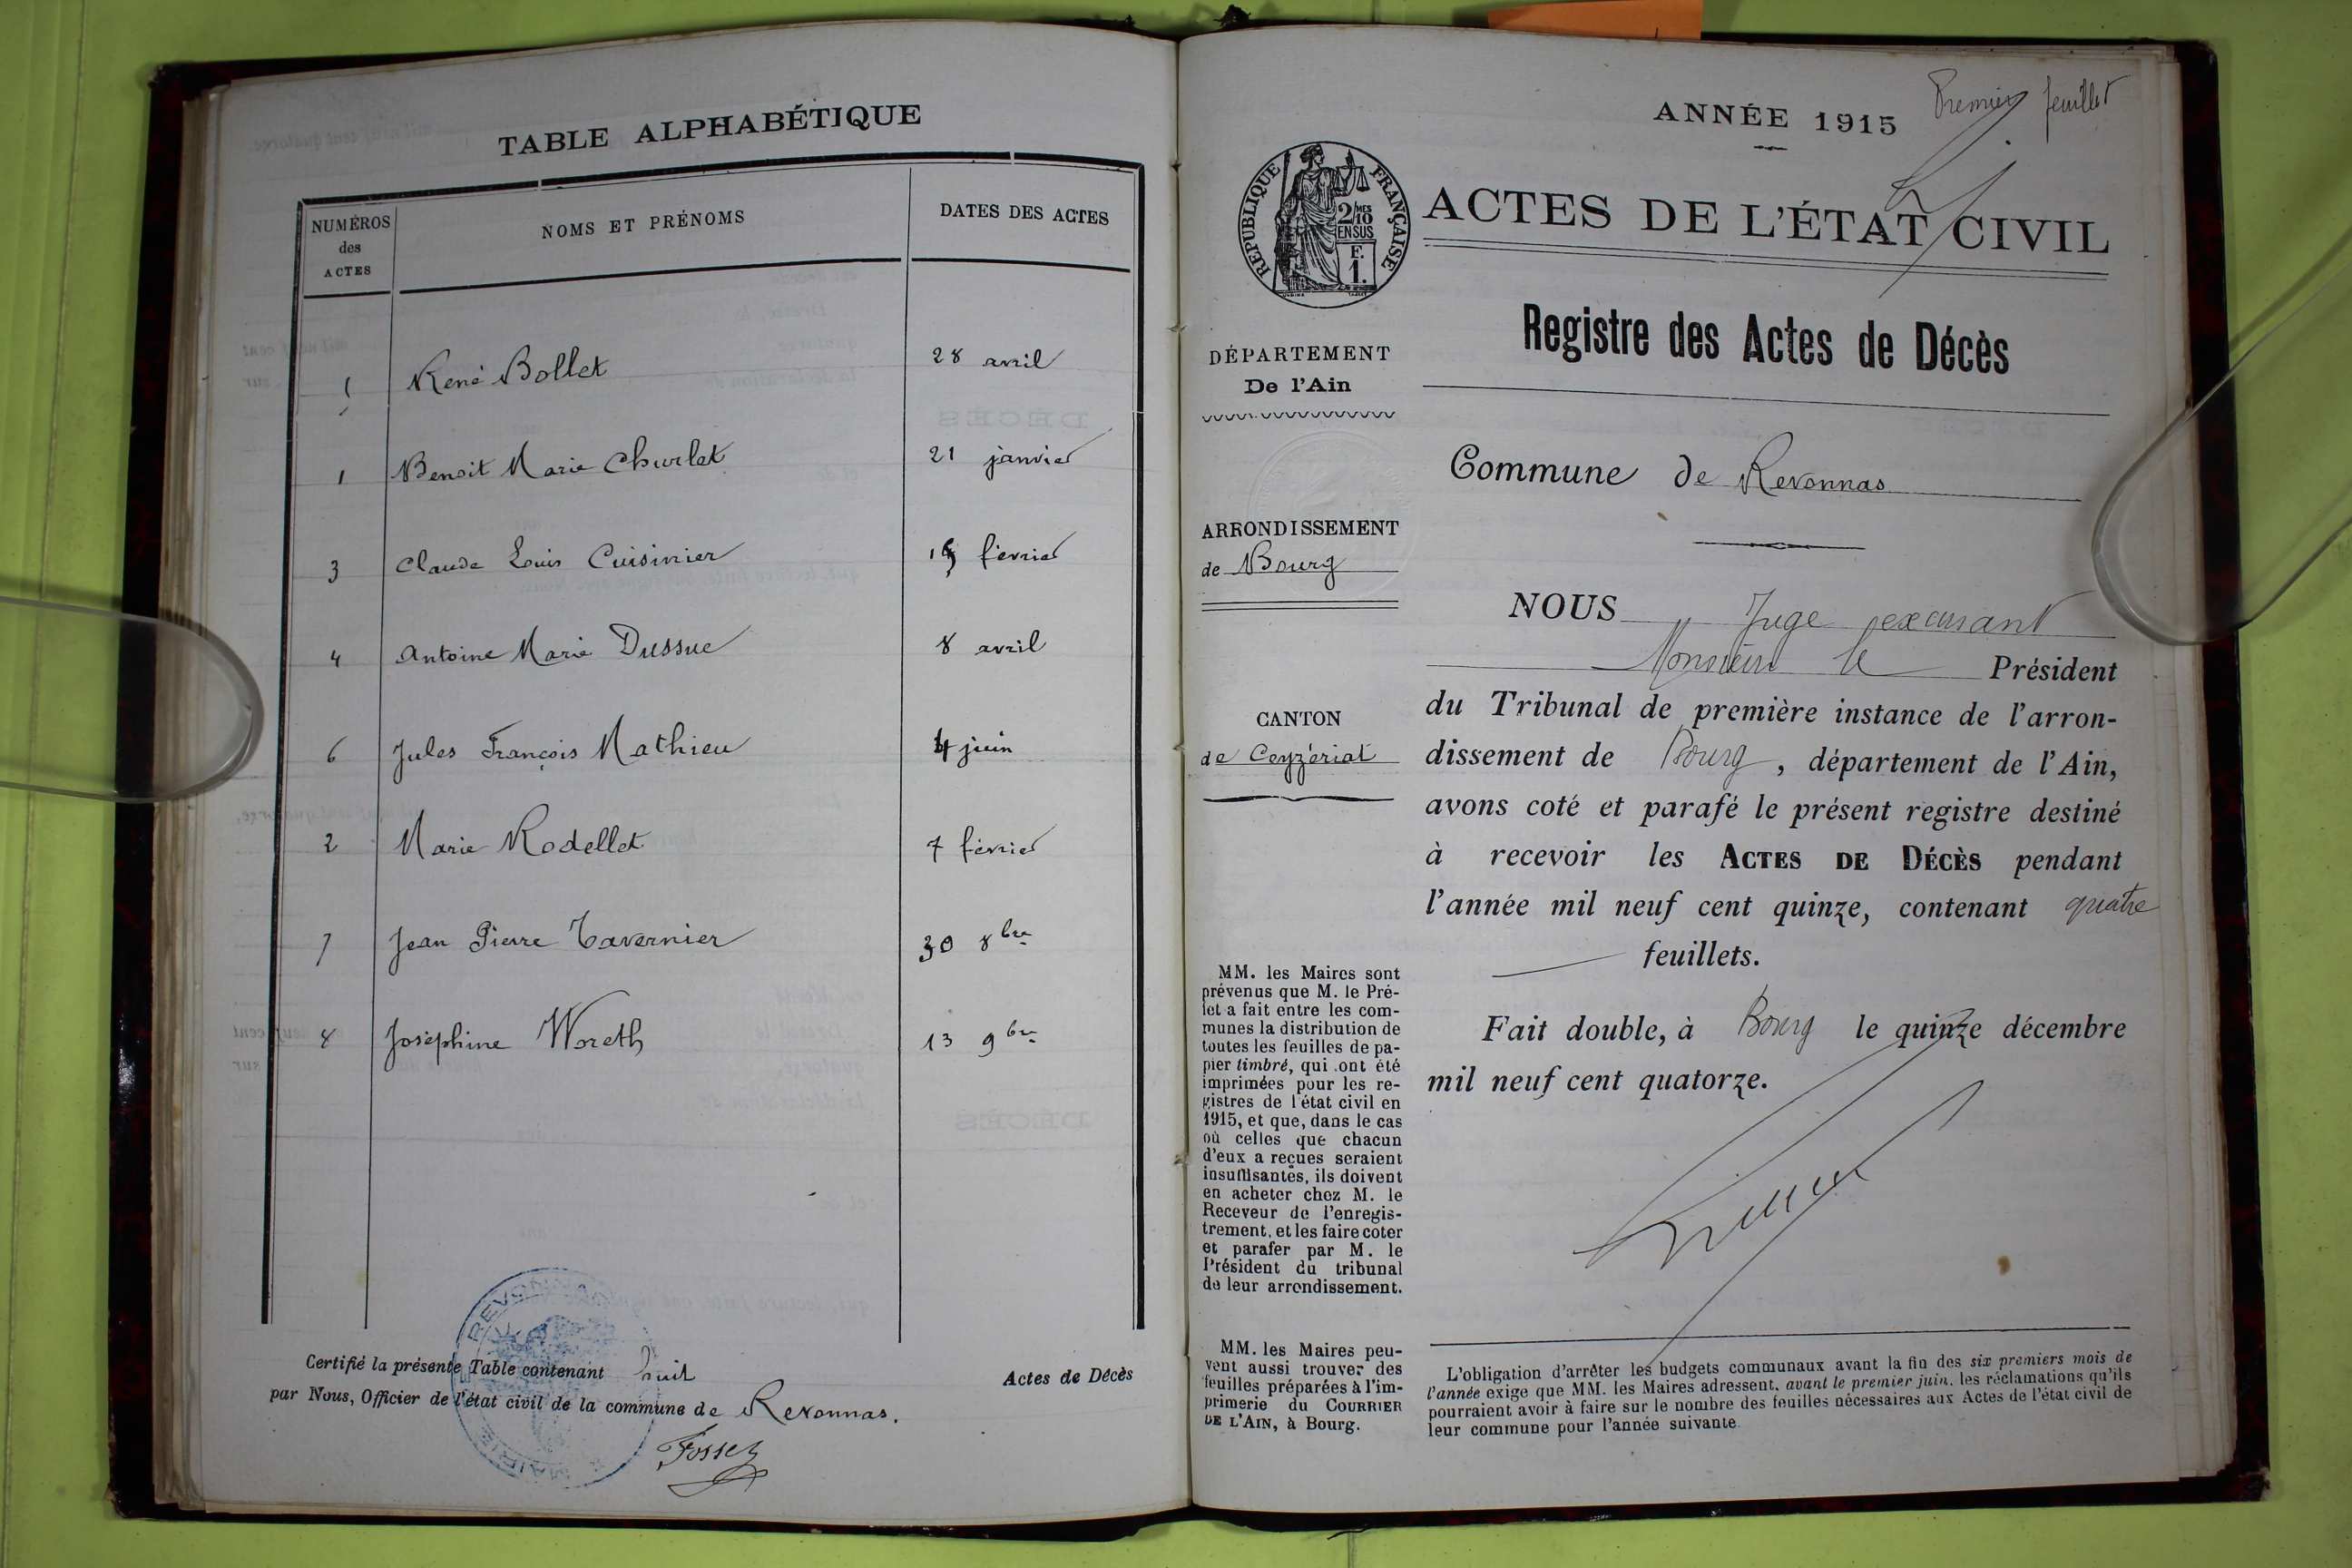 TABLE ALPHABÉTIQUE
NUMÉROS
des
ACTES
NOMS ET PRÉNOMS
DATES DES ACTES
René Bollet 28 avril
1 Benoit Marie Churlet 21 janvier
3 Claude Louis Cuisinier février
4 Antoine Marie Dussuc 8 avril
6 Jules François Mathieu 4 juin
2 Marie Rodellet 7 février
7 Jean Pierre Tavernier 30 8bre
8 Joséphine Woreth 13 9bre
Certifié la présente Table contenant huit Actes de Décès
par Nous, Officier de l'état civil de la commune de Revonnas.
MAIRIE REVONNAS
Premier feuillet
ANNÉE 1915
RÉPUBLIQUE FRANÇAISE
2/10 MES
EN SUS
F.
1.
ACTES DE L'ÉTAT CIVIL
Registre des Actes de Décès
DÉPARTEMENT
De l'Ain
Commune de Revonnas
ARRONDISSEMENT
de Bourg
CANTON
de Ceyzériat
NOUS Juge excusant
Monsieur le Président
du Tribunal de première instance de l'arron-
dissement de Bourg, département de l'Ain,
avons coté et parafé le présent registre destiné
à recevoir les ACTES DE DÉCÈS pendant
l'année mil neuf cent quinze, contenant quatre
feuillets.
Fait double, à Bourg le quinze décembre
mil neuf cent quatorze.
MM. les Maires sont
prévenus que M. le Pré-
fet a fait entre les com-
munes la distribution de
toutes les feuilles de pa-
pier timbré, qui ont été
imprimées pour les re-
gistres de l'état civil en
1915, et que, dans le cas
où celles que chacun
d'eux a reçues seraient
insuffisantes, ils doivent
en acheter chez M. le
Receveur de l'enregis-
trement, et les faire coter
et parafer par M. le
Président du tribunal
de leur arrondissement.
MM. les Maires peu-
vent aussi trouver des
feuilles préparées à l'im-
primerie du COURRIER
DE L'AIN, à Bourg.
L'obligation d'arrêter les budgets communaux avant la fin des six premiers mois de
l'année exige que MM. les Maires adressent, avant le premier juin, les réclamations qu'ils
pourraient avoir à faire sur le nombre des feuilles nécessaires aux Actes de l'état civil de
leur commune pour l'année suivante.